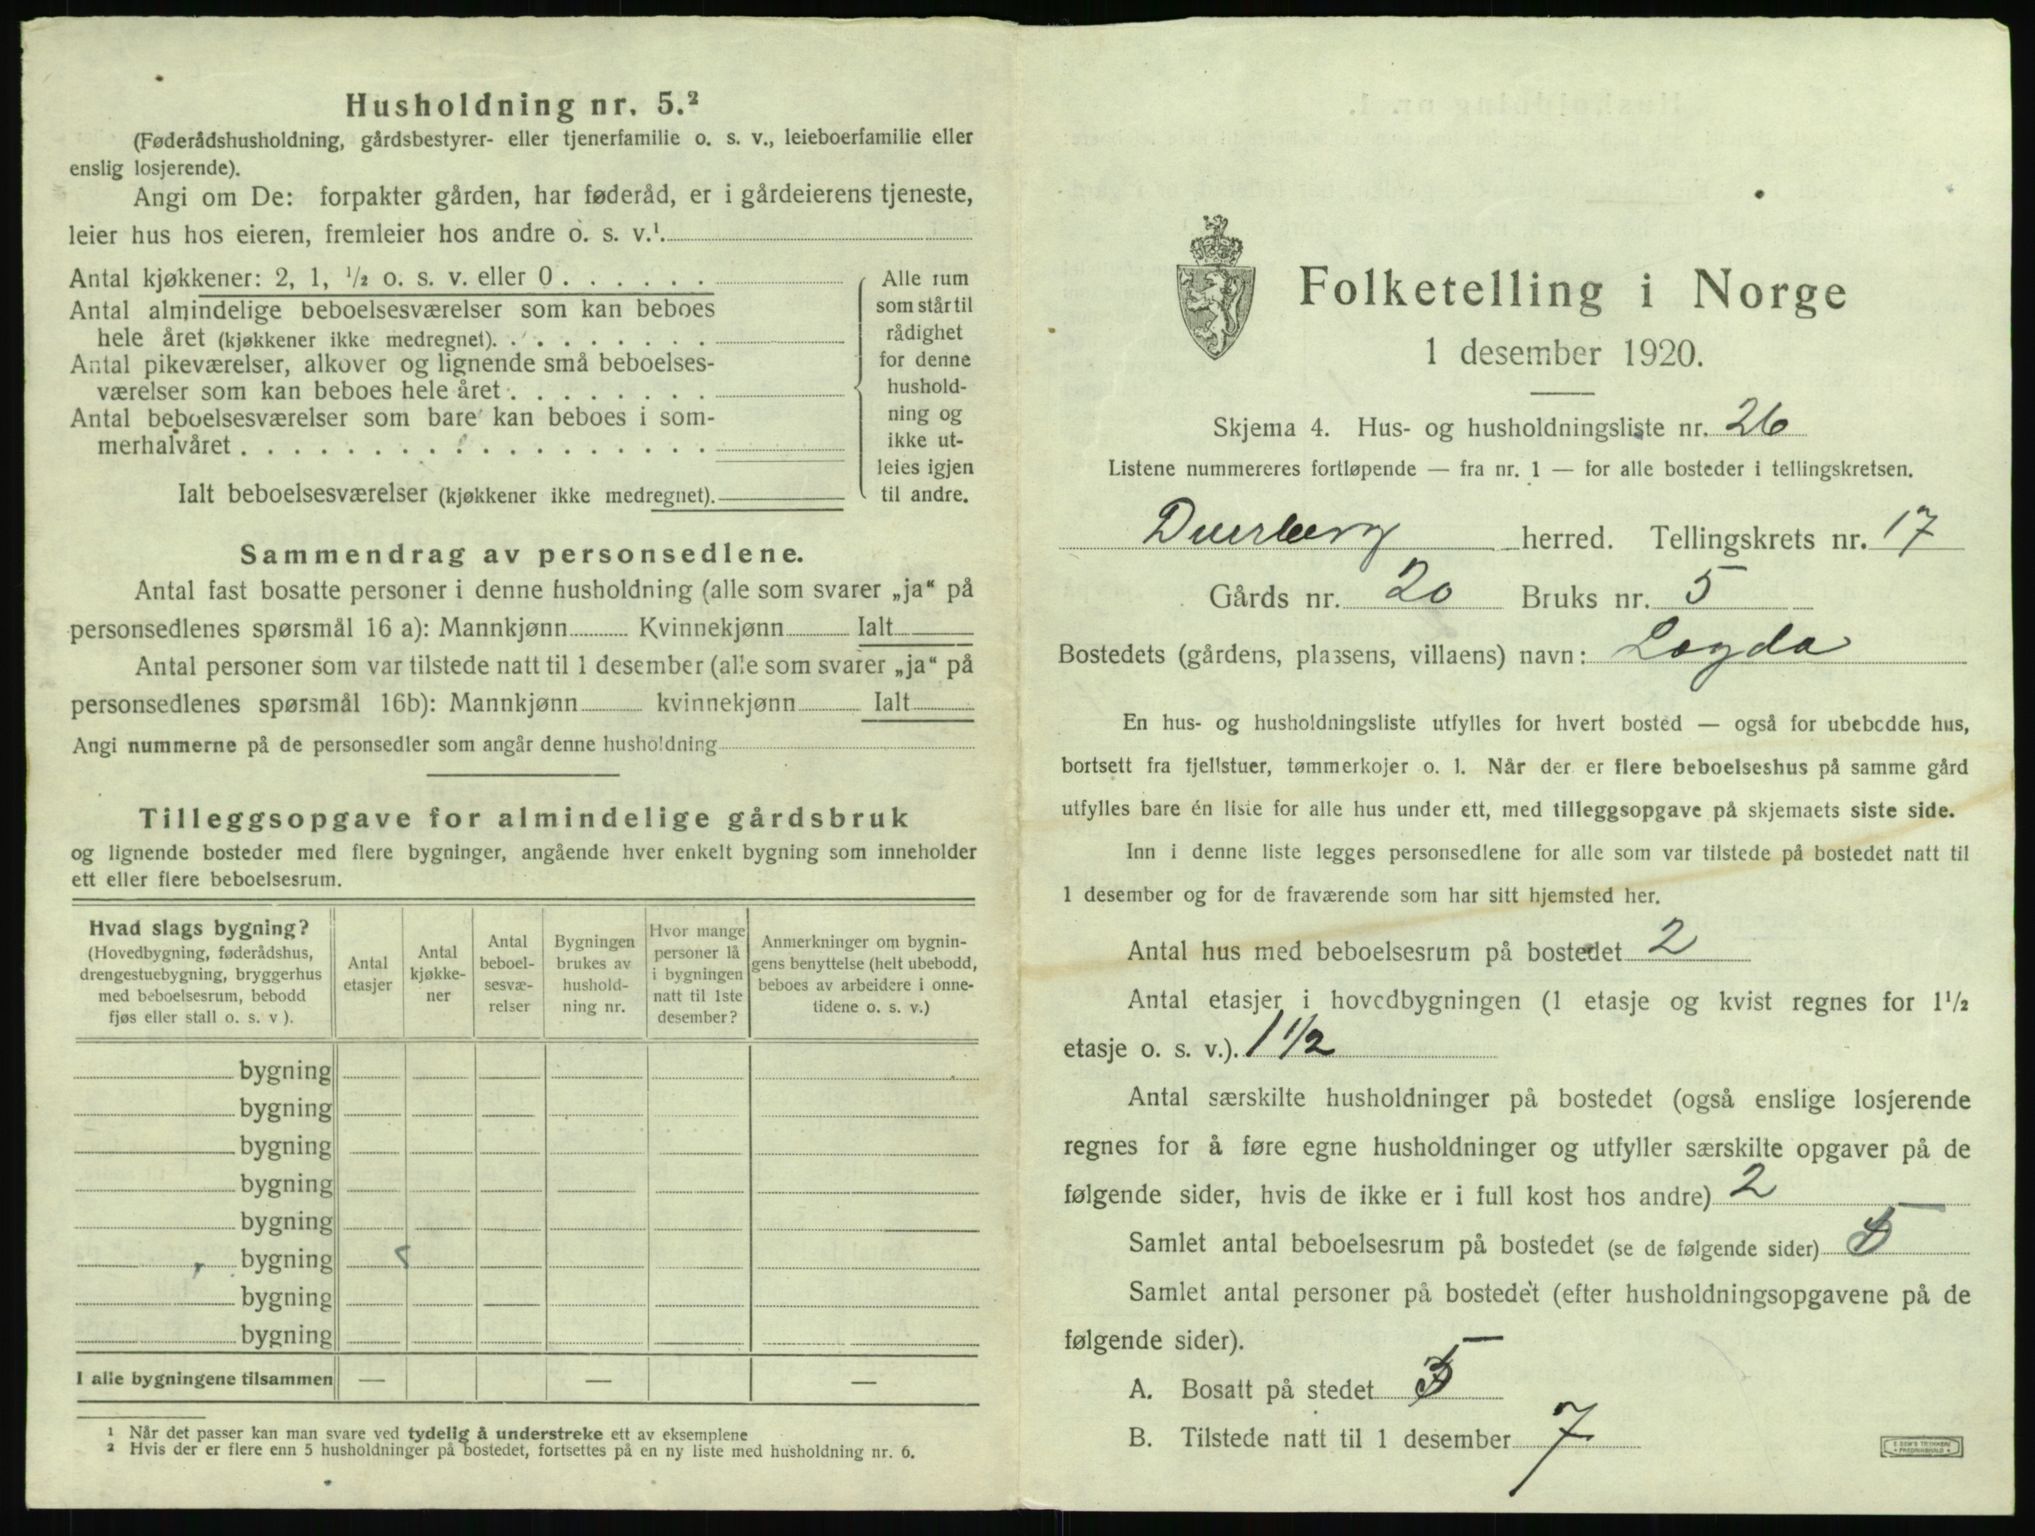 Husholdning nr. 5.²
(Føderådshusholdning, gårdsbestyrer- eller tjenerfamilie o. s. v., leieboerfamilie eller
enslig losjerende).
Angi om De: forpakter gården, har føderåd, er i gårdeierens tjeneste,
leier hus hos eieren, fremleier hos andre o. s. v.¹
Antal kjøkkener: 2, 1, ½ o. s. v. eller 0 . . . . . .
Antal almindelige beboelsesværelser som kan beboes
hele året (kjøkkener ikke medregnet). . . . . . . . .
Antal pikeværelser, alkover og lignende små beboelses-
værelser som kan beboes hele året . . . . . . . .
Antal beboelsesværelser som bare kan beboes i som-
merhalvåret . . . . . . . . . . . . . . . . . .
Ialt beboelsesværelser (kjøkkener ikke medregnet).
Alle rum
som står til
rådighet
for denne
hushold-
ning og
ikke ut-
leies igjen
til andre.
Sammendrag av personsedlene.
Antal fast bosatte personer i denne husholdning (alle som svarer „ja“ på
personsedlenes spørsmål 16 a): Mannkjønn Kvinnekjønn Ialt
Antal personer som var tilstede natt til 1 desember (alle som svarer „ja“ på
personsedlenes spørsmål 16b): Mannkjønn kvinnekjønn Ialt
Angi nummerne på de personsedler som angår denne husholdning
Tilleggsopgave for almindelige gårdsbruk
og lignende bosteder med flere bygninger, angående hver enkelt bygning som inneholder
ett eller flere beboelsesrum.
Hvad slags bygning?
(Hovedbygning, føderådshus,
drengestuebygning, bryggerhus
med beboelsesrum, bebodd
fjøs eller stall o. s. v ).
Antal
etasjer
Antal
kjøkke-
ner
Antal
beboel-
sesvæ-
relser
Bygningen
brukes av
hushold-
ning nr.
Hvor mange
personer lå
i bygningen
natt til 1ste
desember?
Anmerkninger om bygnin-
gens benyttelse (helt ubebodd,
beboes av arbeidere i onne-
tidene o. s. v.)
bygning
bygning
bygning
bygning
bygning
bygning
bygning
bygning
I alle bygningene tilsammen — — —
¹ Når det passer kan man svare ved tydelig å understreke ett av eksemplene
² Hvis der er flere enn 5 husholdninger på bostedet, fortsettes på en ny liste med husholdning nr. 6.
Folketelling i Norge
1 desember 1920.
Skjema 4. Hus- og husholdningsliste nr. 26
Listene nummereres fortløpende — fra nr. 1 — for alle bosteder i tellingskretsen.
Dverberg herred. Tellingskrets nr. 17
Gårds nr. 20 Bruks nr. 5
Bostedets (gårdens, plassens, villaens) navn: Lægda
En hus- og husholdningsliste utfylles for hvert bosted — også for ubebodde hus,
bortsett fra fjellstuer, tømmerkojer o. l. Når der er flere beboelseshus på samme gård
utfylles bare én liste for alle hus under ett, med tilleggsopgave på skjemaets siste side.
Inn i denne liste legges personsedlene for alle som var tilstede på bostedet natt til
1 desember og for de fraværende som har sitt hjemsted her.
Antal hus med beboelsesrum på bostedet 2
Antal etasjer i hovedbygningen (1 etasje og kvist regnes for 1½
etasje o. s. v.). 1 1/2
Antal særskilte husholdninger på bostedet (også enslige losjerende
regnes for å føre egne husholdninger og utfyller særskilte opgaver på de
følgende sider, hvis de ikke er i full kost hos andre) 2
Samlet antal beboelsesrum på bostedet (se de følgende sider) 5
Samlet antal personer på bostedet (efter husholdningsopgavene på de
følgende sider).
A. Bosatt på stedet 5
B. Tilstede natt til 1 desember 7